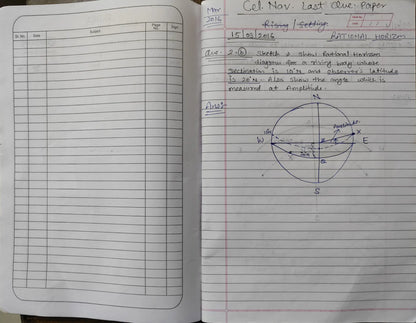 Sr. No.
Date
Subject
Page No.
Sign
Mar 2016
Cel. Nav. Last Que. Paper
Rising / Setting
15/03/2016 RATIONAL HORIZON
Que: 2. (b) Sketch & Show Rational Horizon
diagram for a rising body whose
declination is 10°N and observer's latitude
is 20°N. Also show the angle which is
measured at Amplitude.
Ans:-
N
Amplitude
X
W
E
Z
Q
S